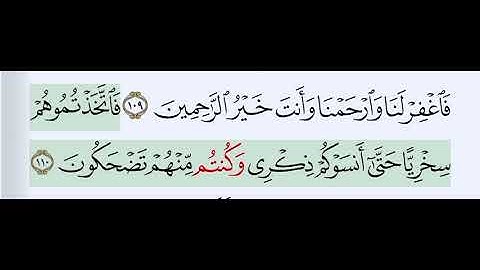 فَٱغْفِرْ لَنَا وَٱرْحَمْنَا وَأَنتَ خَيْرُ ٱلرَّٰحِمِينَ ١٠٩ فَٱتَّخَذْتُمُوهُمْ
سِخْرِيًّا حَتَّىٰٓ أَنسَوْكُمْ ذِكْرِى وَكُنتُم مِّنْهُمْ تَضْحَكُونَ ١١٠